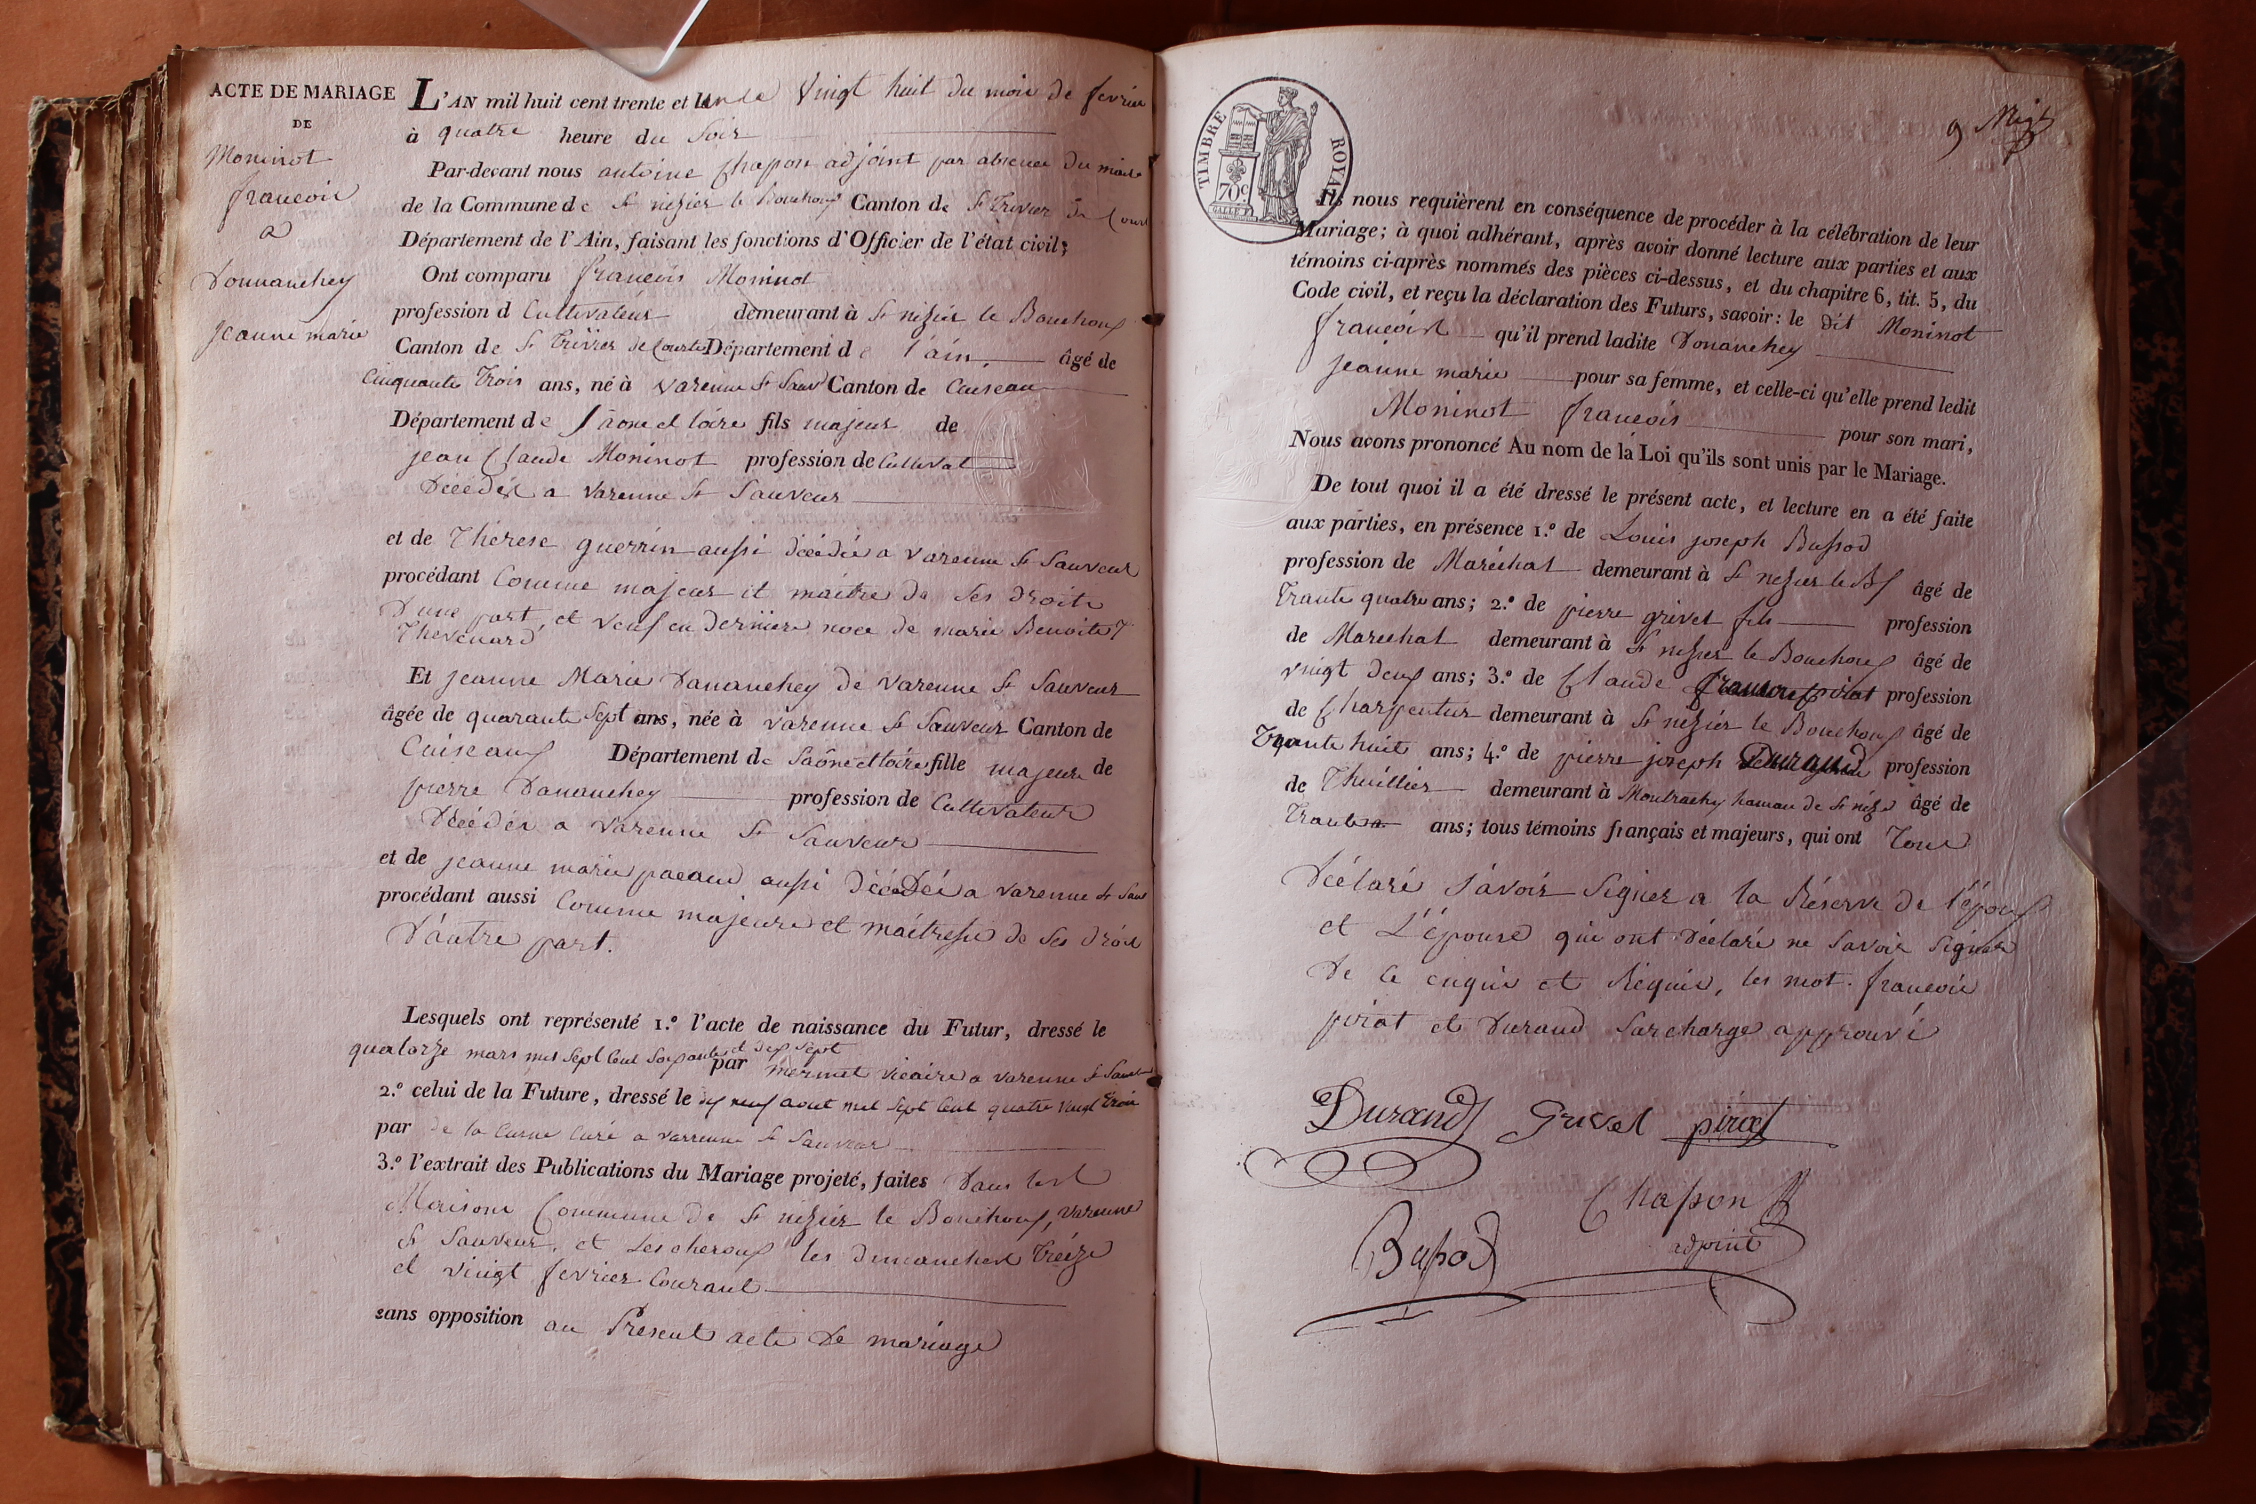 ACTE DE MARIAGE
DE
Moninot
francois
a
Donnanchey
jeanne marie
L'AN mil huit cent trente et un le vingt huit du mois de fevrier
à quatre heure du Soir
Par-devant nous antoine Chapon adjoint par absence du maire
de la Commune de St nizier le Bouchoux Canton de St Trivier de Court
Département de l'Ain, faisant les fonctions d'Officier de l'état civil;
Ont comparu francois Moninot
profession d Cultivateur demeurant à St nizier le Bouchoux
Canton de St Trivier de Courtes Département de l'ain âgé de
Cinquante Trois ans, né à Varenne St Sauv Canton de Cuiseau
Département de Saone et loire fils majeur de
jean Claude Moninot profession de Cultivat
Décédé a Varenne St Sauveur
et de Thérese guerrin aussi décédée a Varenne St Sauveur
procédant Comme majeur et maitre de Ses droits
D'une part, et veuf en derniere noce de marie Benoite
Thevenard
Et jeanne Marie Dananchey de Varenne St Sauveur
âgée de quarante Sept ans, née à Varenne St Sauveur Canton de
Cuiseaux Département de Saône et loire fille majeure de
pierre Dananchey profession de Cultivateur
Décédé a Varenne St Sauveur
et de jeanne marie pacaud aussi décédée a Varenne St Sauv
procédant aussi Comme majeure et maitresse de Ses droit
D'autre part.
Lesquels ont représenté 1.º l'acte de naissance du Futur, dressé le
quatorze mars mil Sept Cent Soixante et dix Sept
par mermet vicaire a Varenne St Sauveur
2.º celui de la Future, dressé le dix neuf aout mil Sept Cent quatre vingt trois
par de la Curne Curé a Varenne St Sauveur
3.º l'extrait des Publications du Mariage projeté, faites Dans les
Maisons Commune de St nizier le Bouchoux, Varenne
St Sauveur, et Lescheroux les dimanches Treize
et vingt fevrier Courant
sans opposition au Présent acte de mariage
TIMBRE ROYAL
70 c.
9
Ils nous requièrent en conséquence de procéder à la célébration de leur
Mariage; à quoi adhérant, après avoir donné lecture aux parties et aux
témoins ci-après nommés des pièces ci-dessus, et du chapitre 6, tit. 5, du
Code civil, et reçu la déclaration des Futurs, savoir: le dit Moninot
francois qu'il prend ladite Donanchey
jeanne marie pour sa femme, et celle-ci qu'elle prend ledit
Moninot francois pour son mari,
Nous avons prononcé Au nom de la Loi qu'ils sont unis par le Mariage.
De tout quoi il a été dressé le présent acte, et lecture en a été faite
aux parties, en présence 1.º de Louis joseph Bussod
profession de Maréchal demeurant à St nizier le Bx âgé de
Trante quatre ans; 2.º de pierre grivet fils profession
de Marechal demeurant à St nizier le Bouchoux âgé de
vingt deux ans; 3.º de Claude francois pirat profession
de Charpentier demeurant à St nizier le Bouchoux âgé de
Trante huit ans; 4.º de pierre joseph Durand profession
de Thuillier demeurant à Montrachy hamau de St niz âgé de
Trante ans; tous témoins français et majeurs, qui ont Tous
Déclaré Savoir Signer a la Réserve de l'époux
et L'épouse qui ont déclaré ne Savoir Signer
de ce enquis et Requis, les mot. francois
pirat et Durand Surcharge approuvé
Durand Grivet pirat
Chapon
adjoint
Bussod